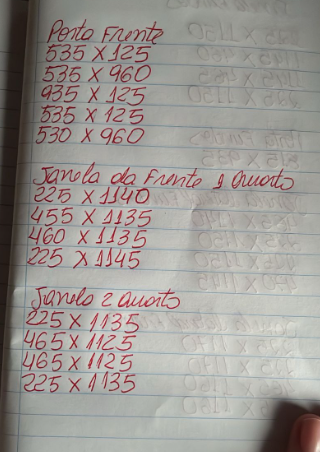 Porta Frente
535 X 125
535 X 960
935 X 125
535 X 125
530 X 960
Janela da Frente 1 Quarto
225 X 1140
455 X 1135
460 X 1135
225 X 1145
Janela 2 Quarto
225 X 1135
465 X 1125
465 X 1125
225 X 1135